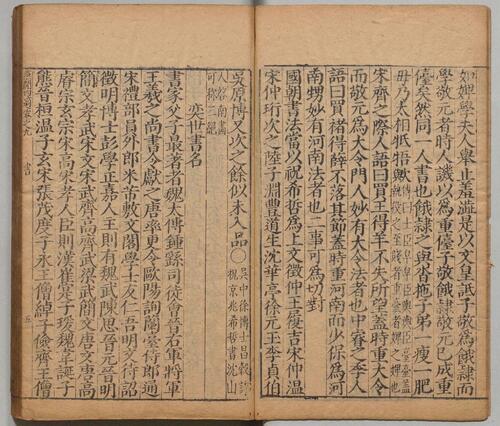 如婢學夫人舉止羞澀是以文皇詆子敬為餓隸而
學敬元者時人譏以為重儓子敬餓隸敬元已成重
儓矣然同一人書也餓隸之與沓拖子弟一瘦一肥
毋乃太相牴牾歟
宋齊之際人語曰買王得羊不失所望蓋時重大令
而敬元為大令門人妙有大令法者也中眘之季人
語曰買褚得薛不落其節蓋時重河南而少保為河
南甥妙有河南法者也二事可為切對
國朝書法當以祝希哲為上文徵仲王履吉宋仲溫
宋仲珩次之陸子淵豐道生沈華亭徐元玉李貞伯
吳原博又次之餘似未入品○吳中徐博士昌穀詩祝京兆希哲書沈山
人啓南畫可稱三絕
奕世書名
書家父子最著者魏太傅鍾繇司徒會晉右軍將軍
王羲之尚書令獻之唐率更令歐陽詢蘭臺侍郎通
宋禮部員外郎米芾敷文閣學士友仁吾明文待詔
徵明博士彭學正嘉人王則有魏武陳思晉元晉明
簡文孝武宋文宋武齊高齊武梁武簡文唐文唐高
睿宗玄宗宋高宋孝人臣則漢崔寔子瑗魏韋誕子
熊晉桓溫子玄宋張茂度子永王僧綽子儉齊王僧
書
五